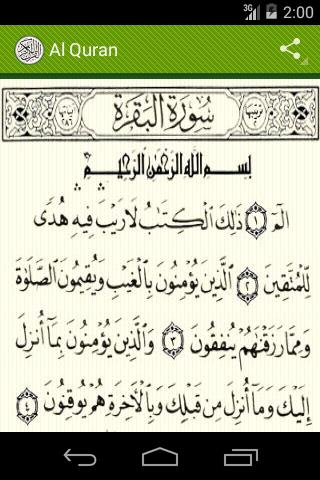 3G 2:00
Al Quran
سُورَةُ الْبَقَرَةِ
بِسْمِ اللَّهِ الرَّحْمَٰنِ الرَّحِيمِ
الٓمٓ ۝١ ذَٰلِكَ الْكِتَٰبُ لَا رَيْبَ فِيهِ هُدًى
لِّلْمُتَّقِينَ ۝٢ الَّذِينَ يُؤْمِنُونَ بِالْغَيْبِ وَيُقِيمُونَ الصَّلَوٰةَ
وَمِمَّا رَزَقْنَٰهُمْ يُنفِقُونَ ۝٣ وَالَّذِينَ يُؤْمِنُونَ بِمَا أُنزِلَ
إِلَيْكَ وَمَا أُنزِلَ مِن قَبْلِكَ وَبِالْآخِرَةِ هُمْ يُوقِنُونَ ۝٤